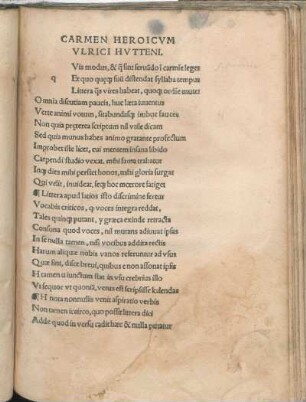 CARMEN HEROICVM
VLRICI HVTTENI.
Vis modus, & q̃ sint seruãdo ĩ carmĩe leges
q
Ex quo quęq; suũ distendat syllaba tempus
Littera q̃s vires habeat, quoq; ordine mutet
Omnia discutiam paucis, huc læta iuuentus
Verte animi votum,
Non quia pręterea scriptum nil
Sed quia munus habes animo gratante profectum
Improbet ille licet, cui mentem insana libido
Carpendi studio vexat. mihi fama trahatur
Inq; dies mihi perstet honos, mihi gloria surgat
Qui velit, inuideat, seq; hoc mœrore fatiget
¶ Littera apud latios isto discrimine fertur
Vocalis criticos, q̃ voces integra reddat,
Tales quinq; putant, y græca exinde retracta
Consona quod voces, nil mutans adiuuat ipsas
In se nulla tamen, nisi vocibus addita rectis
Harum aliquæ nobis vanos referuntur ad vsus
Quæ sint, disce breui, quibus e non assonat ipsis
H tamen u iunctum stat in vsu crebrius illo
Vt sequor vt quoniã, veteres est scripsisse
¶ H nota nonnullis venit aspiratio verbis
Non tamen iccirco, quo possit littera dici
Adde quod in versu cadit hæc & nulla putatur